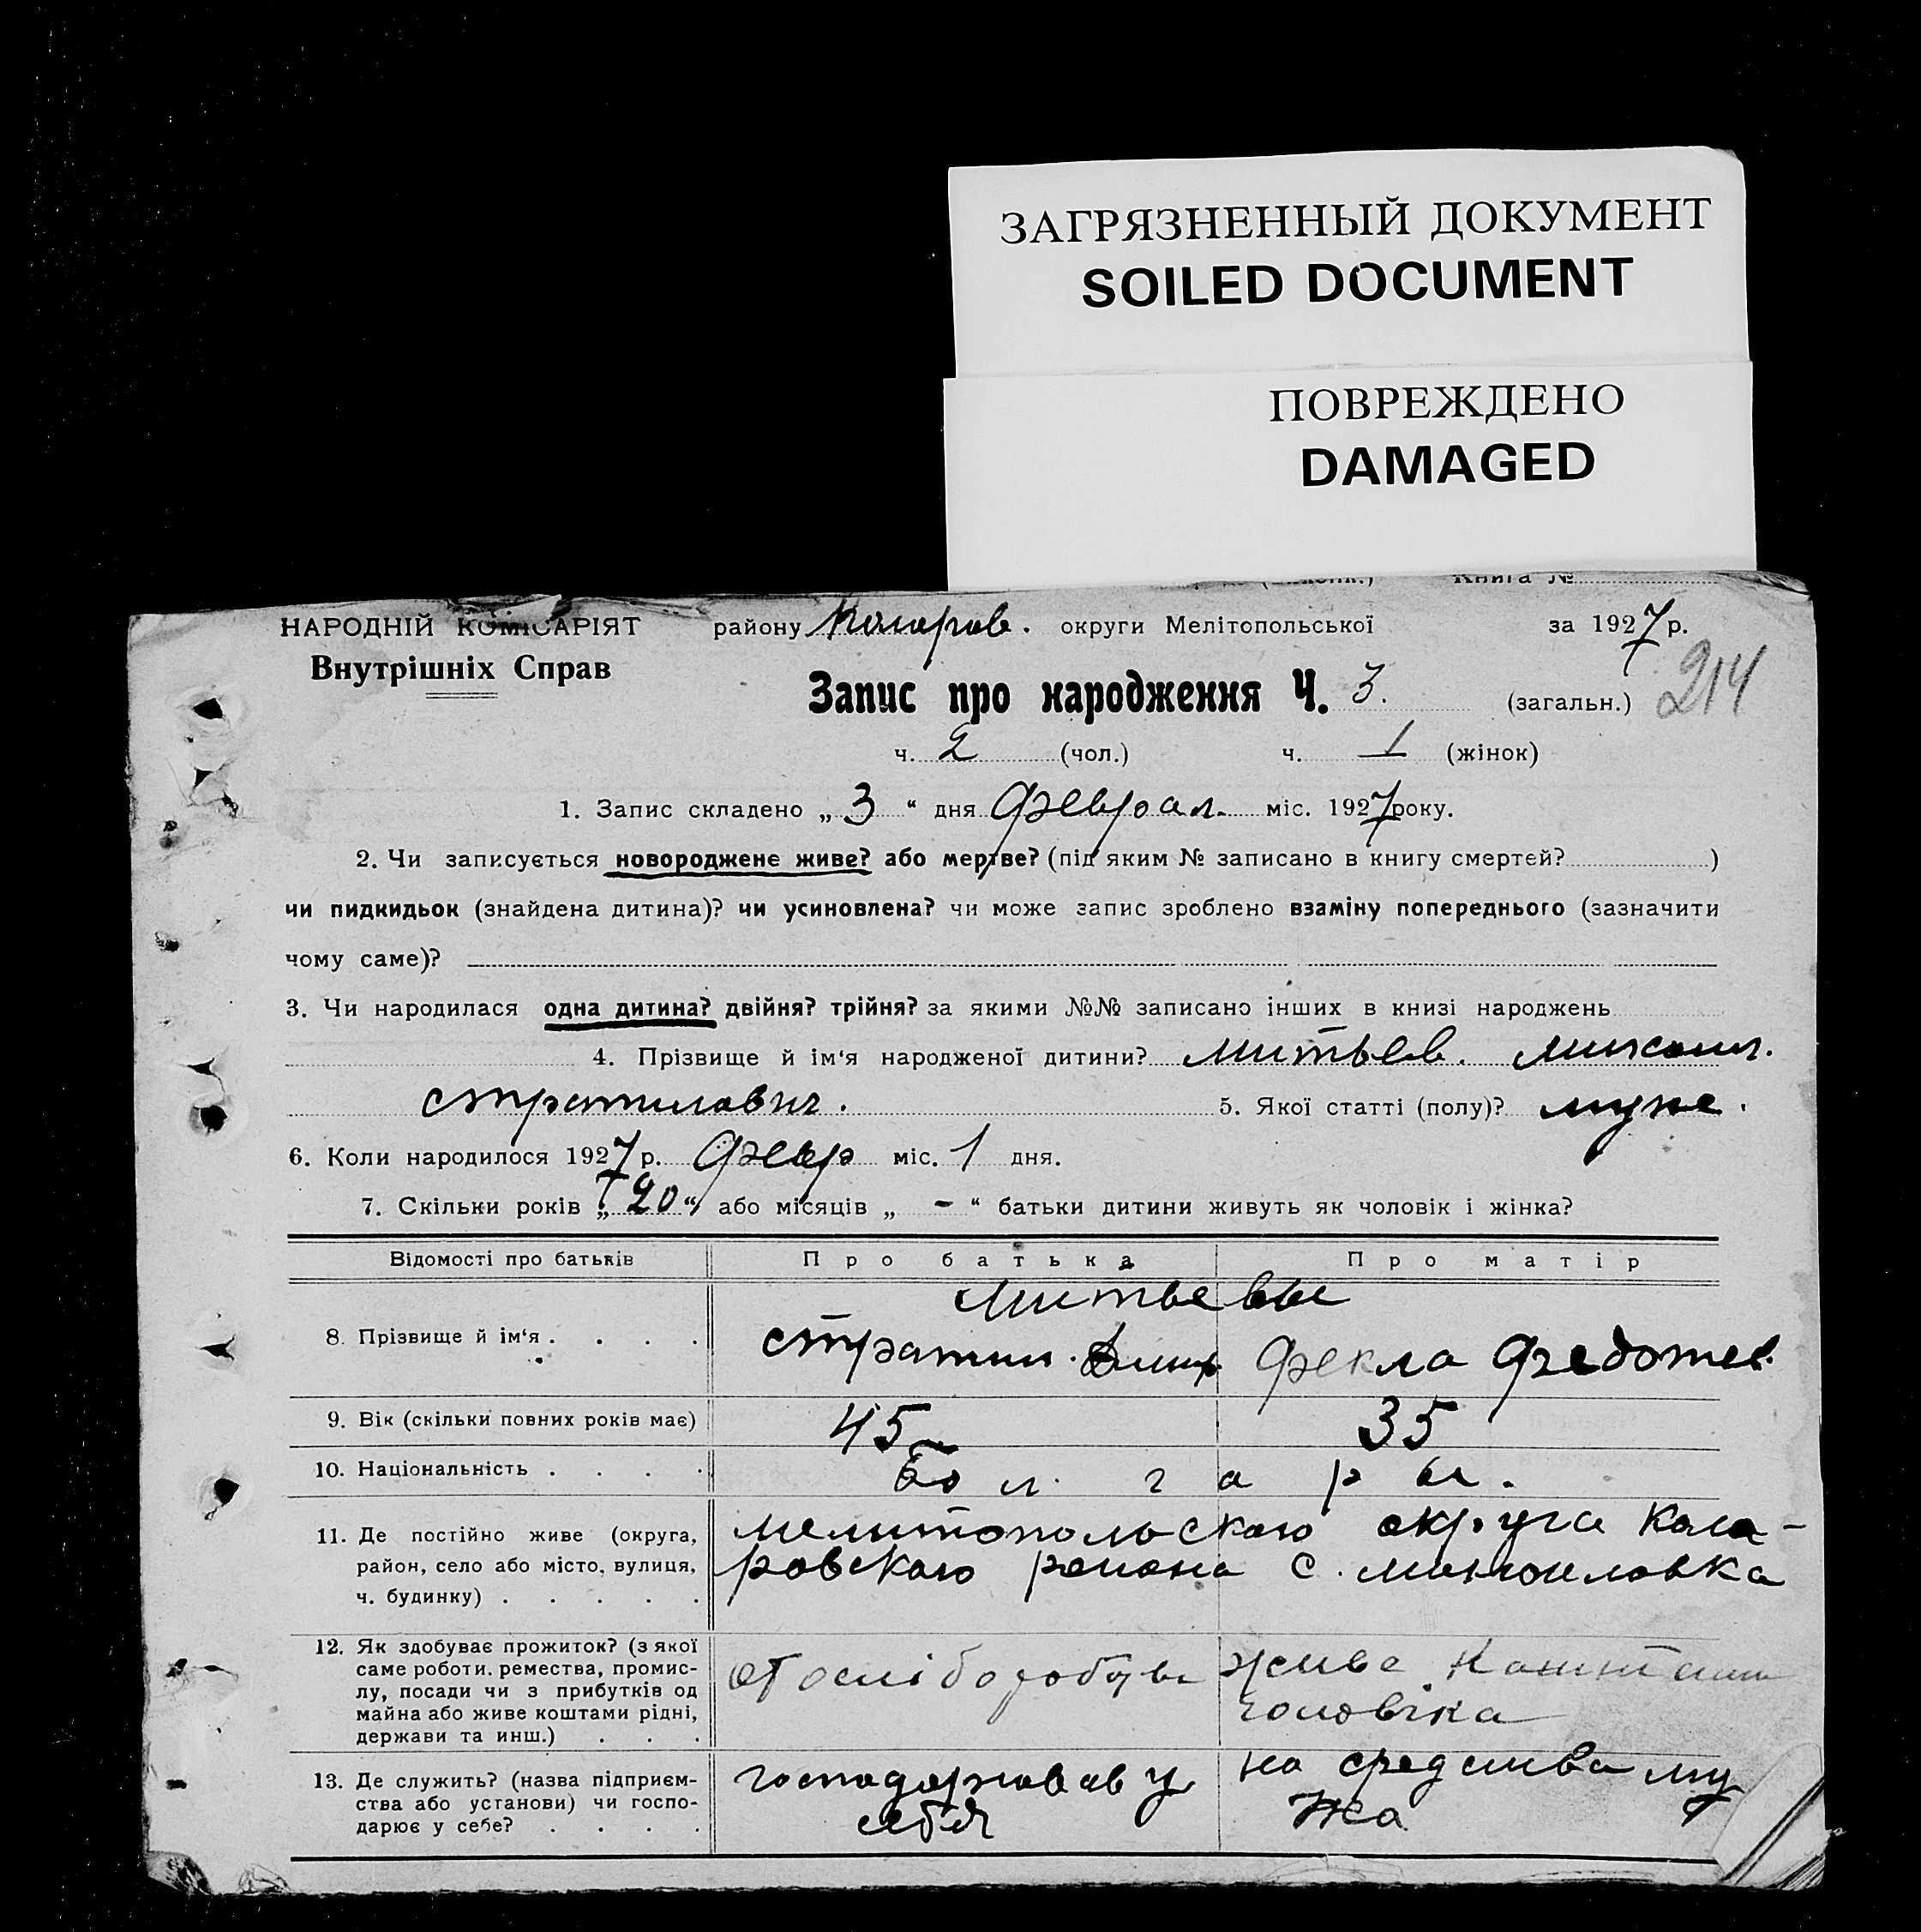 ЗАГРЯЗНЕННЫЙ ДОКУМЕНТ
SOILED DOCUMENT
ПОВРЕЖДЕНО
DAMAGED
Книга №
НАРОДНІЙ КОМІСАРІЯТ району Коларов. округи Мелітопольської за 1927 р.
Внутрішніх Справ
214
Запис про народження Ч. 3. (загальн.)
ч. 2 (чол.) ч. 1 (жінок)
1. Запис складено „ 3 “ дня Феврал. міс. 1927 року.
2. Чи записується новороджене живе? або мертве? (під яким № записано в книгу смертей? )
чи пидкидьок (знайдена дитина)? чи усиновлена? чи може запис зроблено взаміну попереднього (зазначити
чому саме)?
3. Чи народилася одна дитина? двійня? трійня? за якими №№ записано інших в книзі народжень
4. Прізвище й ім‘я народженої дитини? Митьев. Михаил.
стратилович. 5. Якої статті (полу)? муже.
6. Коли народилося 1927 р. Февр міс. 1 дня.
7. Скільки років „ 20 “ або місяців „ - “ батьки дитини живуть як чоловік і жінка?
Відомості про батьків Про батька Про матір
Митьевы
8. Прізвище й ім‘я . . . . стратил. Фекла Федотев.
9. Вік (скільки повних років має) 45 35
10. Національність . . . . бол га ры.
11. Де постійно живе (округа, мелитопольского округа Кола-
район, село або місто, вулиця, ровского района с. михаиловка
ч. будинку) . . . . .
12. Як здобуває прожиток? (з якої живе коштами
саме роботи, ремества, промис-
лу, посади чи з прибутків од чоловіка
майна або живе коштами рідні,
держави та инш.) . . .
13. Де служить? (назва підприєм- на средства му
ства або установи) чи госпо- себя жа
дарює у себе? . . . .